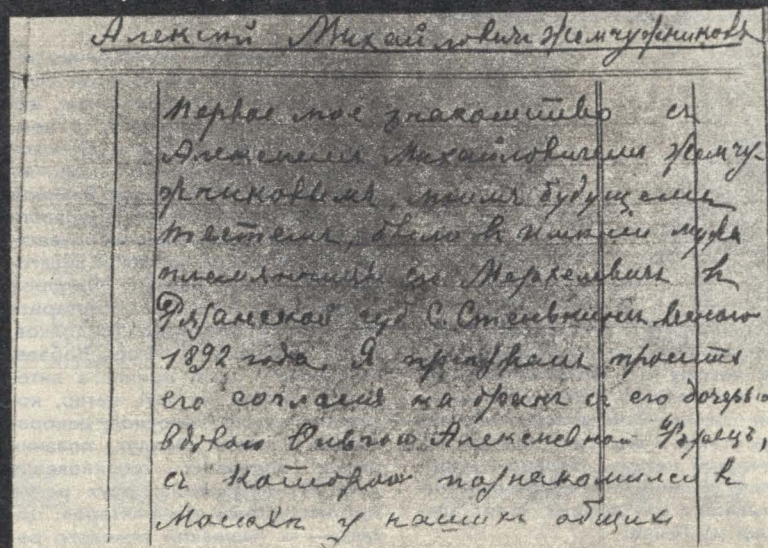 Алексѣй Михайловичъ Жемчужниковъ
Первое мое знакомство съ
Алексѣемъ Михайловичемъ Жемчу-
жниковымъ, моимъ будущемъ
тестемъ, было въ имѣнiи мужа
племянницы его Меркелевичъ въ
Рязанской губ С. Стенькино весною
1892 года. Я прiѣхалъ просить
его согласiя на бракъ съ его дочерью
вдовою Ольгою Алексѣевной
съ которой познакомился въ
Москвѣ у нашихъ общихъ